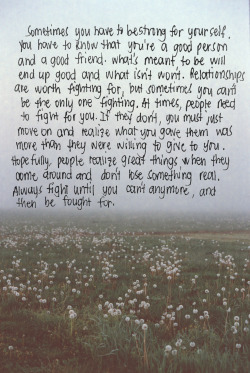 Sometimes you have to be strong for yourself.
You have to know that you're a good person
and a good friend. What's meant to be will
end up good and what isn't won't. Relationships
are worth fighting for, but sometimes you can't
be the only one fighting. At times, people need
to fight for you. If they don't, you must just
move on and realize what you gave them was
more than they were willing to give to you.
Hopefully, people realize great things when they
come around and don't lose something real.
Always fight until you can't anymore, and
then be fought for.